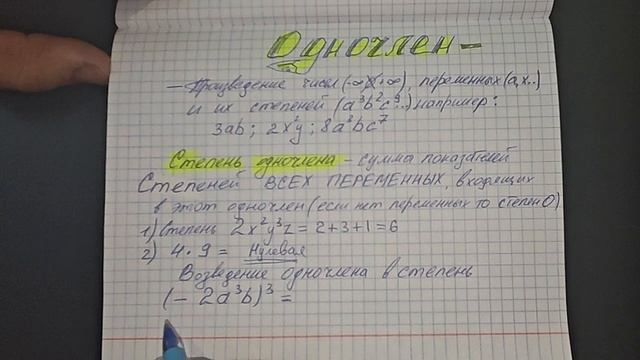 Одночлен -
- Произведение чисел (-∞;+∞), переменных (a,x..)
и их степеней (a³b²c⁹..) например:
3ab; 2x²y; 8a³bc⁷
Степень одночлена - сумма показателей
Степеней ВСЕХ ПЕРЕМЕННЫХ, входящих
в этот одночлен (если нет переменных то степен 0)
1) Степень 2x²y³z = 2+3+1=6
2) 4·9 = Нулевая
Возведение одночлена в степень
(- 2a³b)³ =